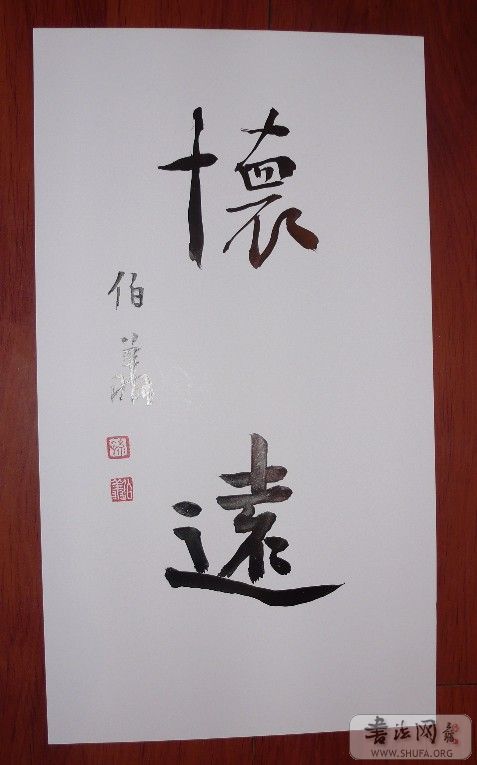 懷遠
伯
书法网
WWW.SHUFA.ORG